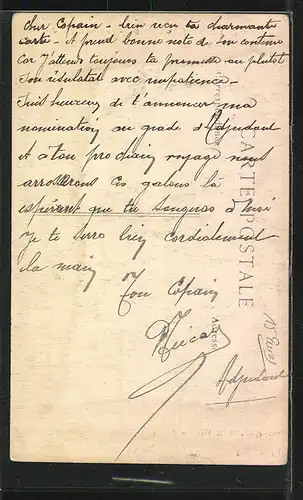 Cher Copain - bien reçu ta charmante
carte - A prend bonne note de son contenu
Car J'attend toujours ta promesse au plutot
Son résulatat avec impatience -
Suis heureux de t'annoncer ma
nomination au grade d'Adjudant
et a ton prochain voyage nous
arroserons ces galons là
espérant que tu songeras a moi
Je te serre bien cordialement
la main
Ton Copain
Adjudant
CARTE POSTALE
Correspondance
Adresse
15 Euros